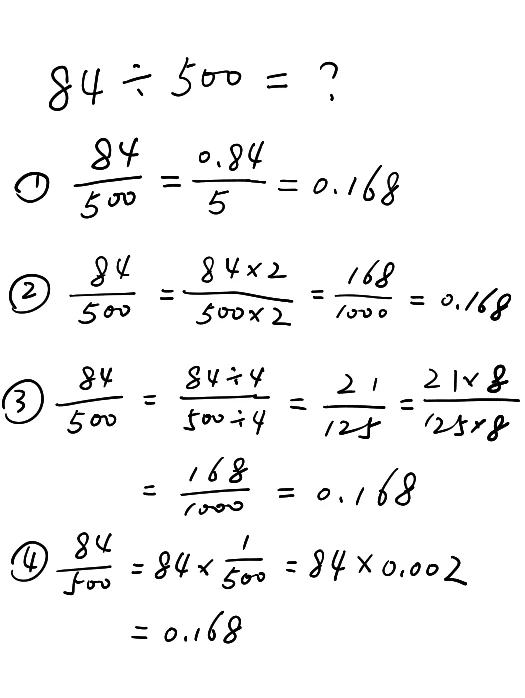 84 ÷ 500 = ?
① 84/500 = 0.84/5 = 0.168
② 84/500 = 84×2/500×2 = 168/1000 = 0.168
③ 84/500 = 84÷4/500÷4 = 21/125 = 21×8/125×8
= 168/1000 = 0.168
④ 84/500 = 84 × 1/500 = 84 × 0.002
= 0.168